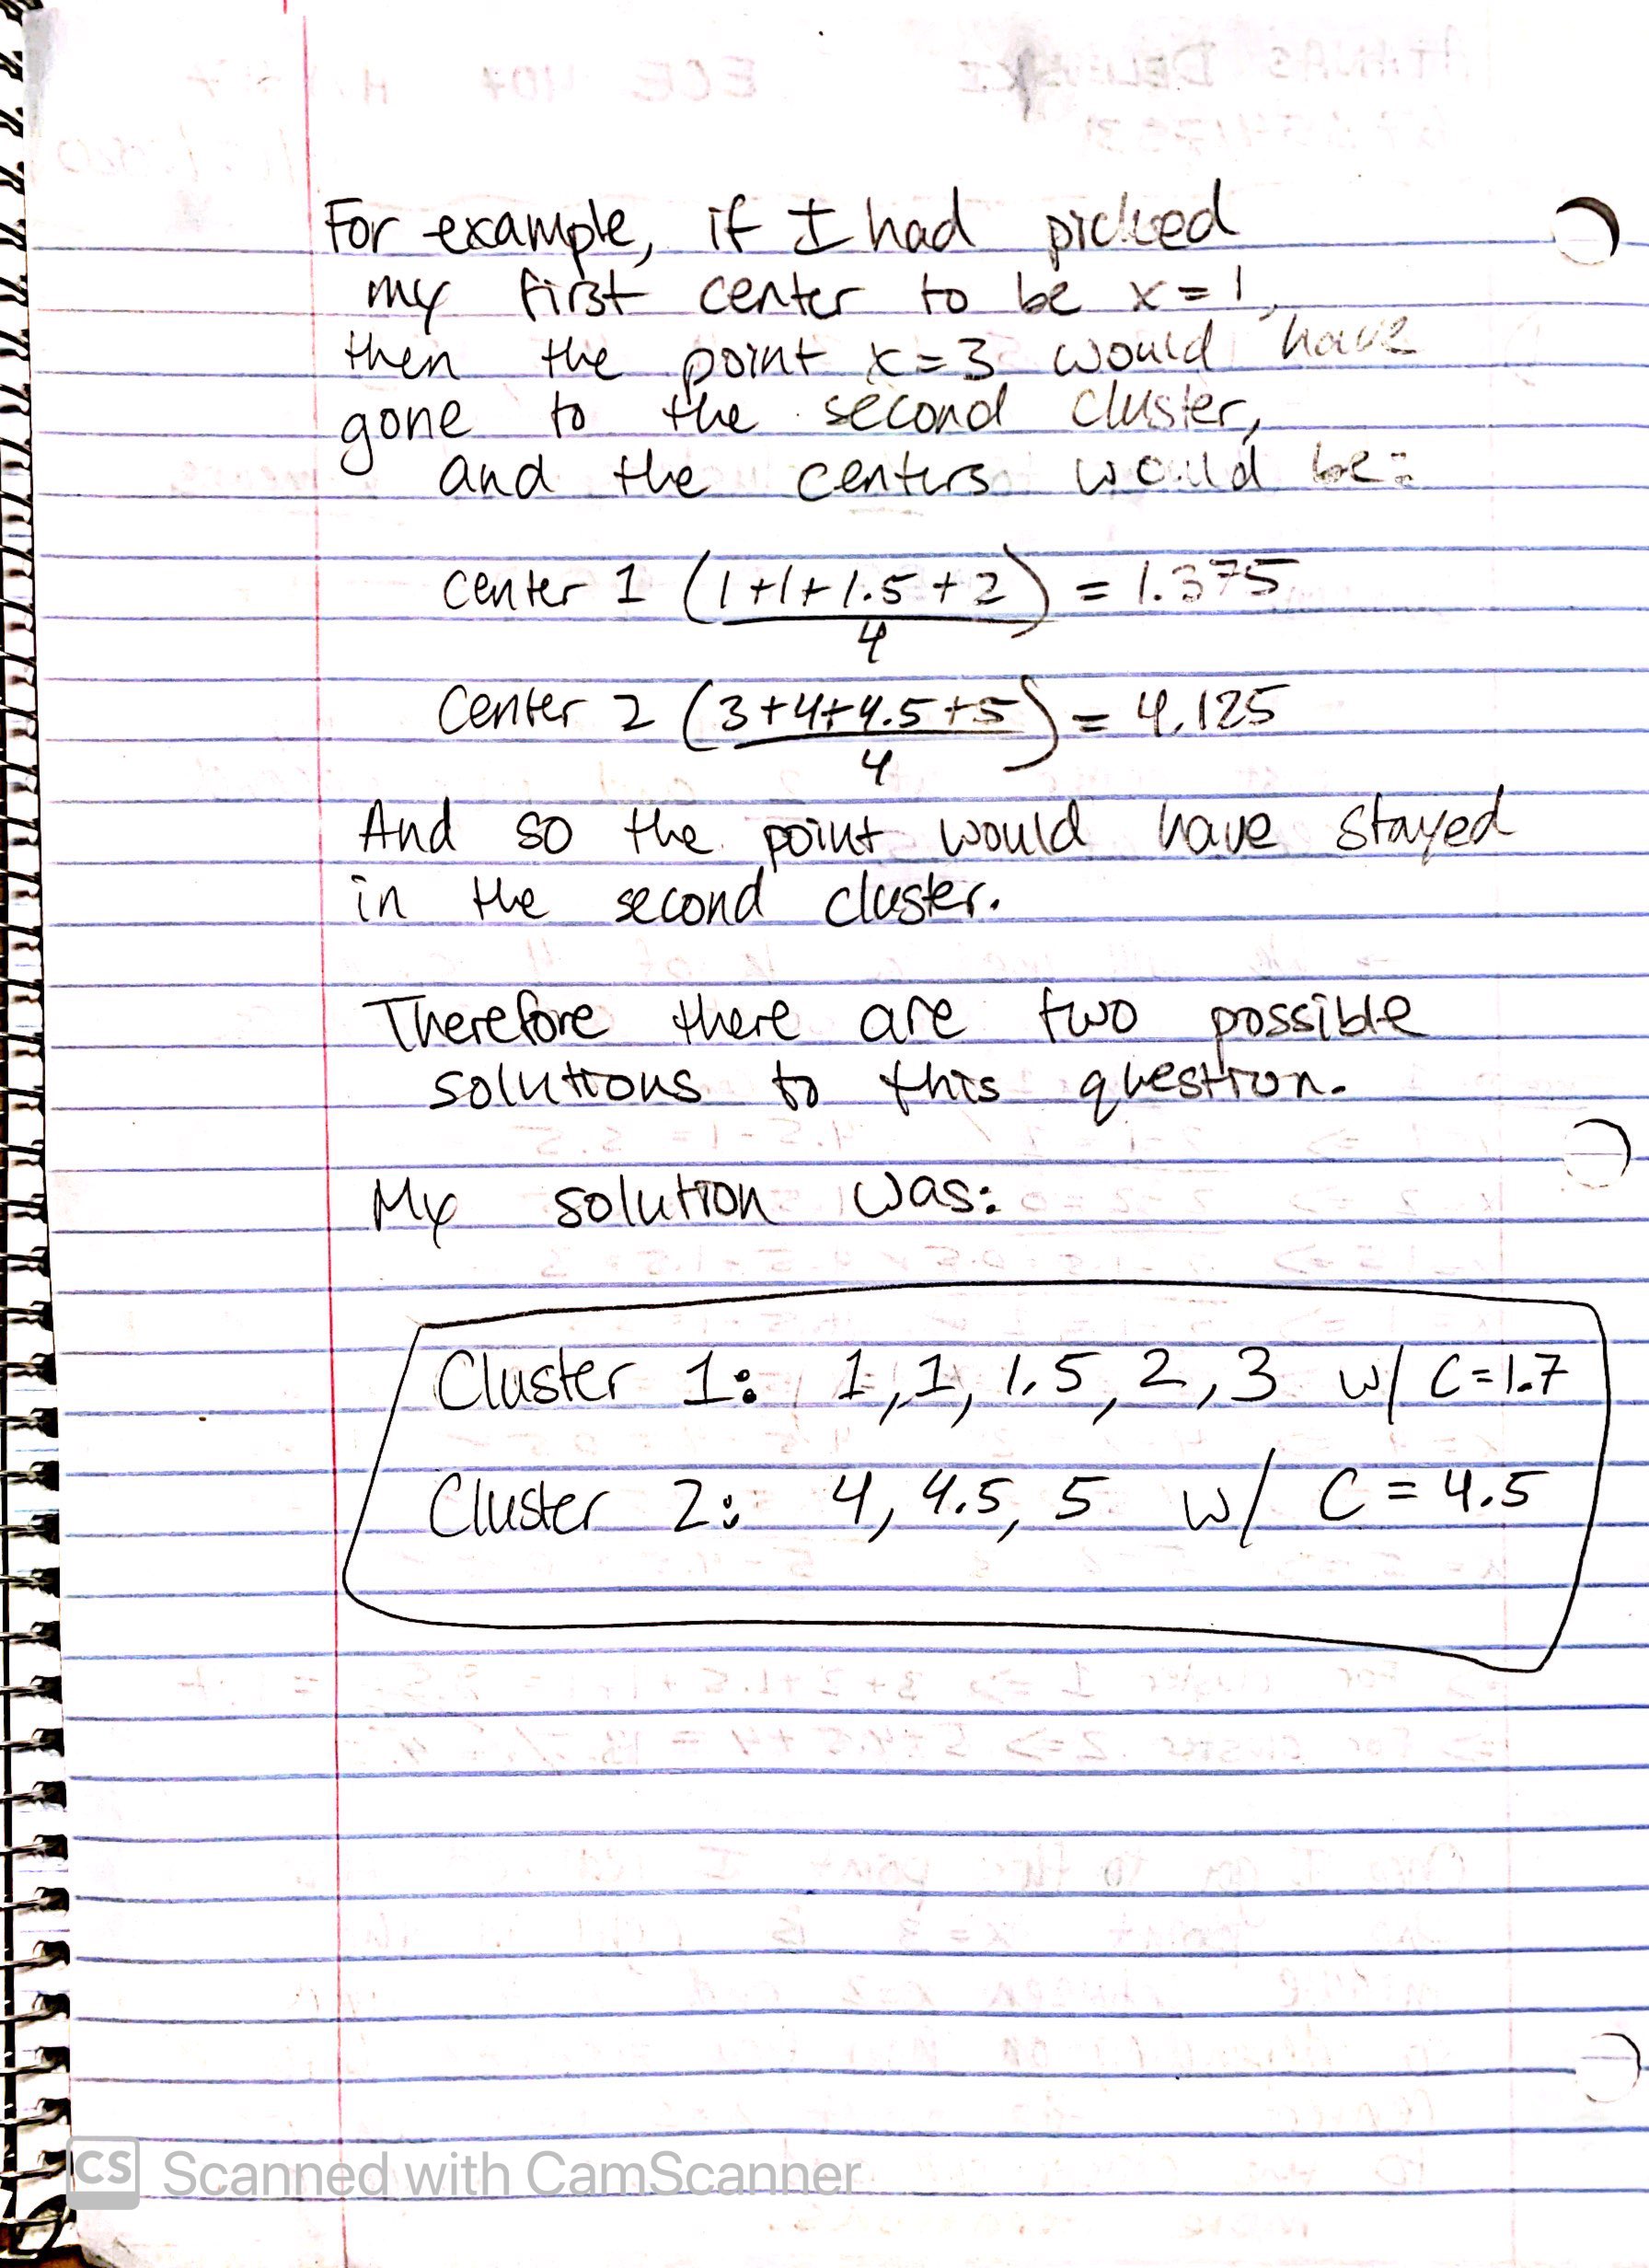 For example, if I had picked
my first center to be x=1,
then the point x=3 would have
gone to the second cluster,
and the centers would be:
center 1 (1+1+1.5+2) = 1.375
4
Center 2 (3+4+4.5+5) = 4.125
4
And so the point would have stayed
in the second cluster.
Therefore there are two possible
solutions to this question.
My solution was:
Cluster 1: 1, 1, 1.5, 2, 3 w/ C=1.7
Cluster 2: 4, 4.5, 5 w/ C = 4.5
CS Scanned with CamScanner